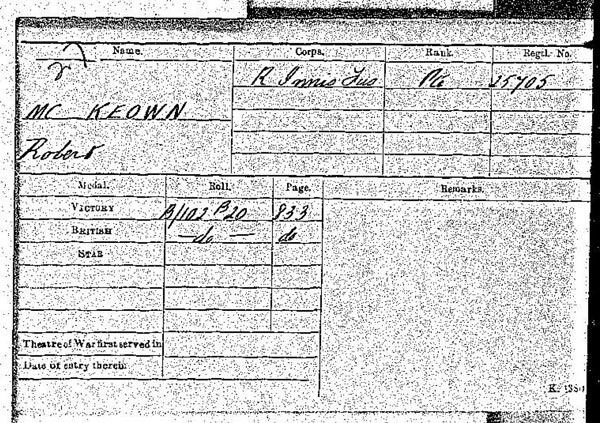 Name. Corps. Rank. Regtl. No.
R Innis Fus Pte 25705
MC KEOWN
Robert
Medal. Roll. Page. Remarks.
VICTORY B/102 B20 833
BRITISH — do — do
STAR
Theatre of War first served in
Date of entry therein